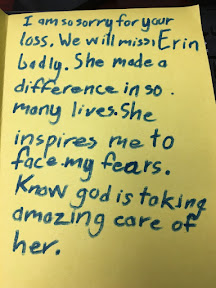 I am so sorry for your
loss. We will miss Erin
badly. She made a
difference in so
many lives. She
inspires me to
face my fears.
Know god is taking
amazing care of
her.